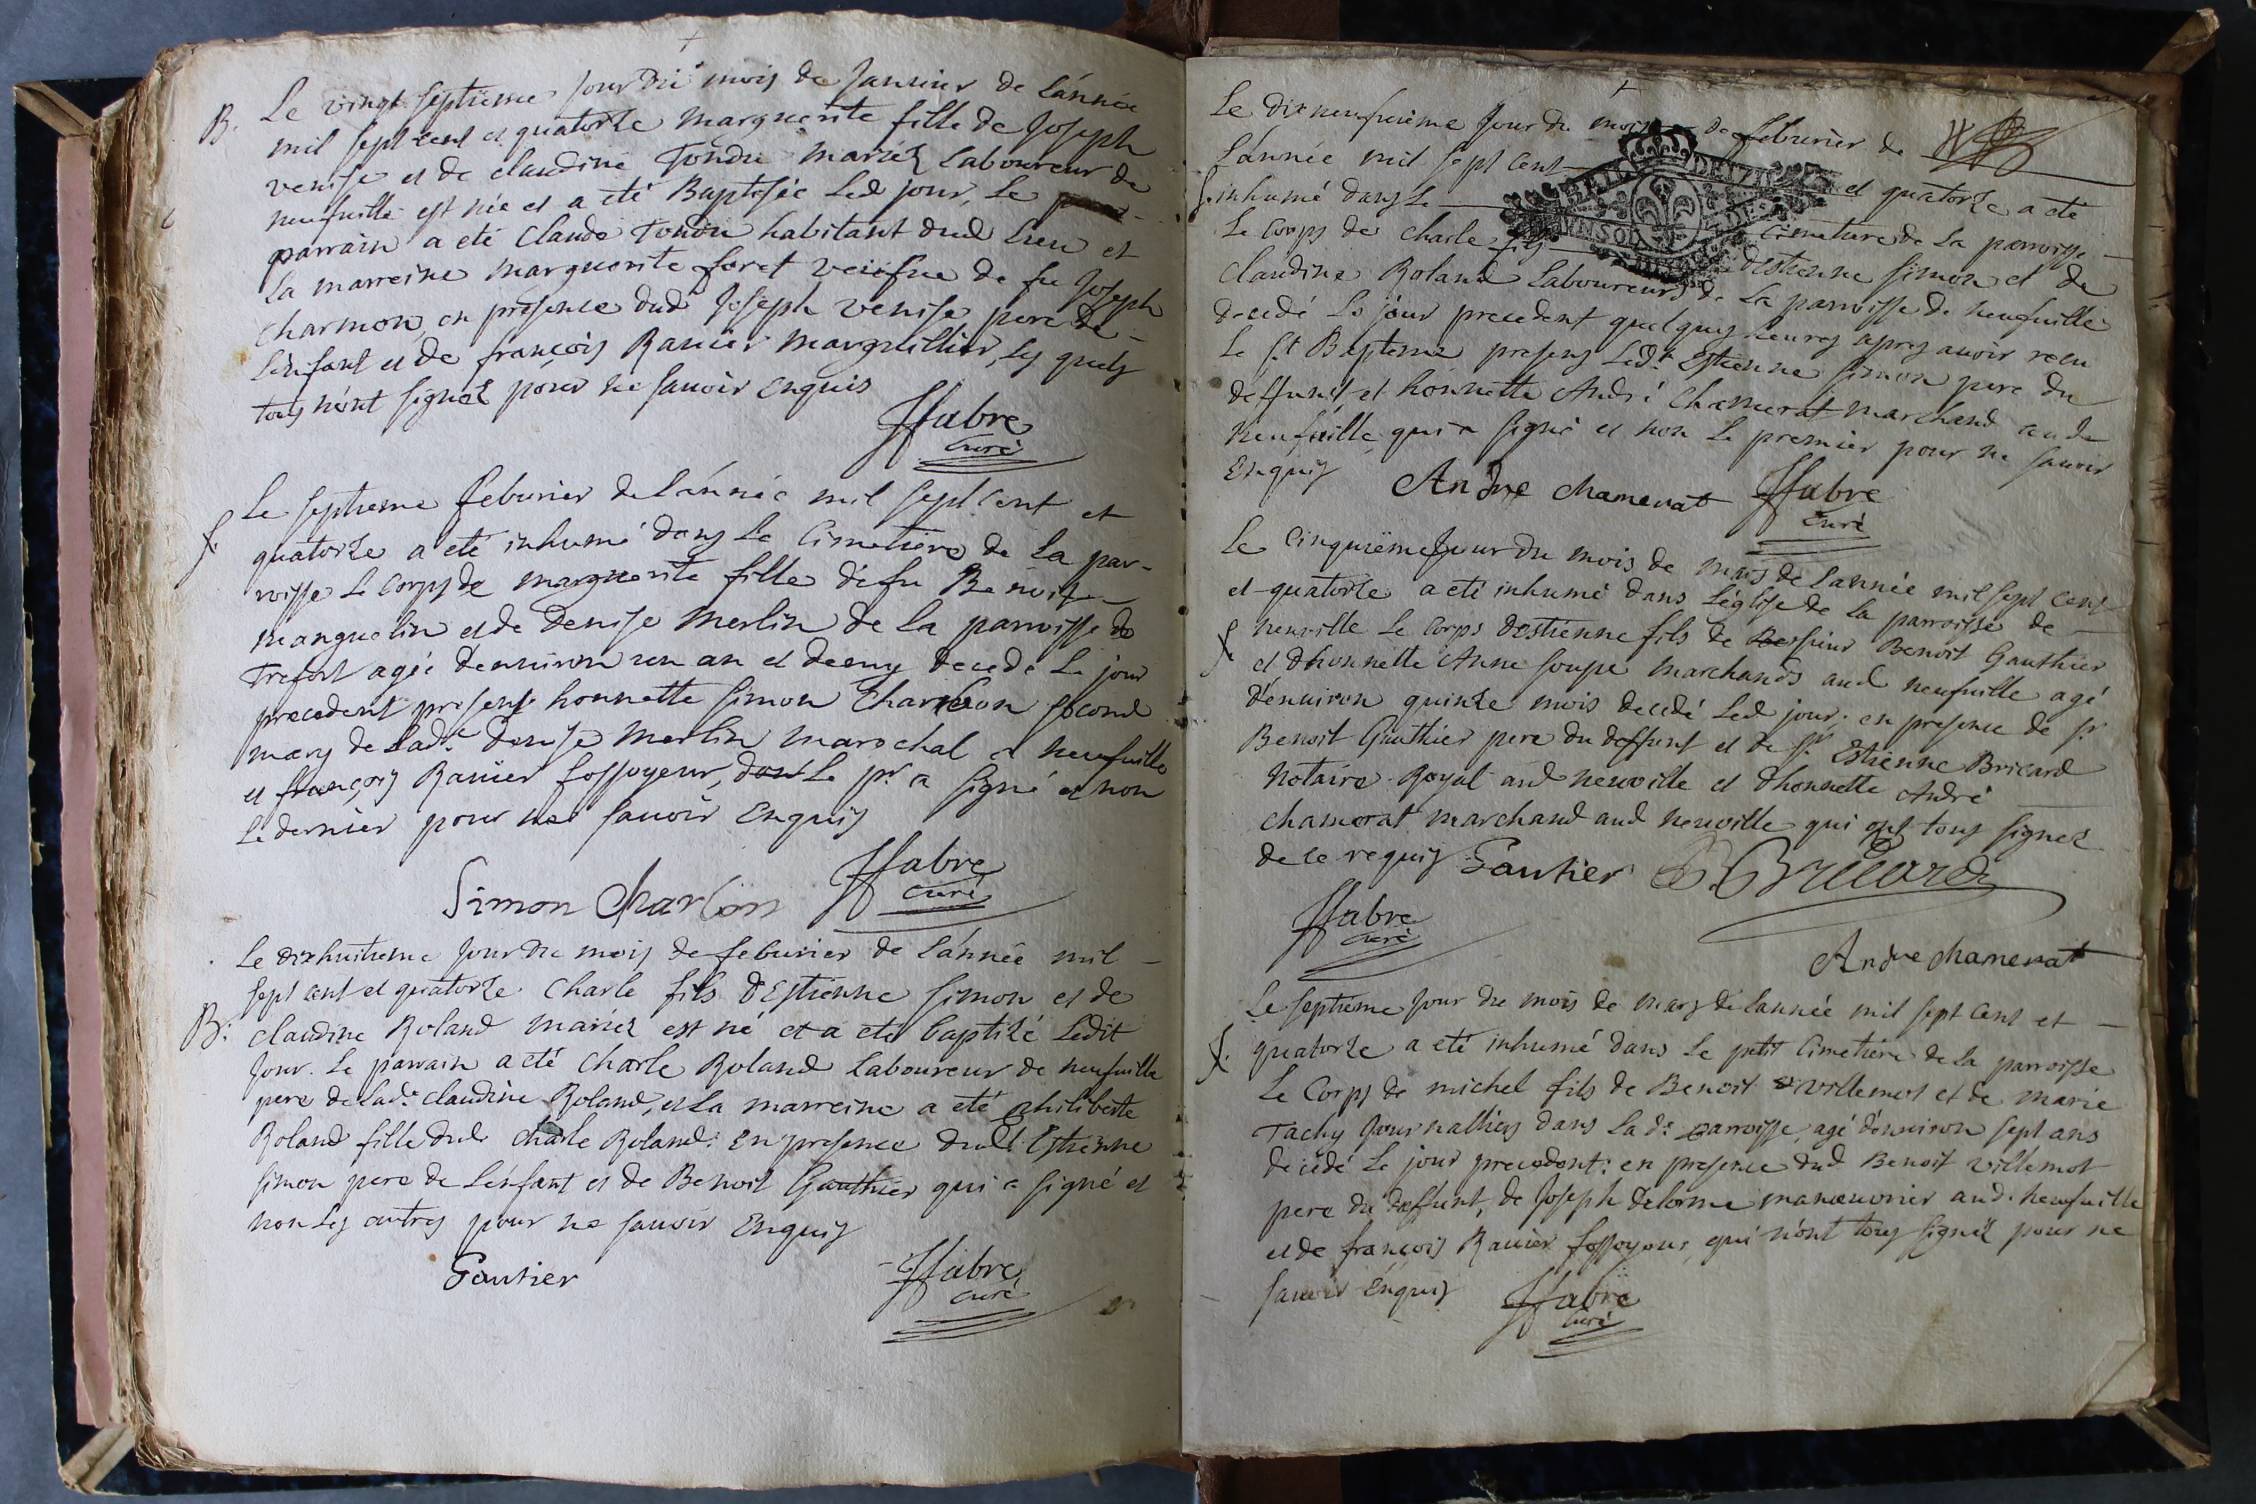 B. Le vingt septieme jour du mois de Janvier de L'année
mil sept cent et quatorze marguerite fille de Joseph
venise et de claudine Tondu mariéz Laboureur de
neufuille est née et a eté Baptisée Led jour, Le
parrain a eté Claude Tondu habitant dud Lieu et
La marreine marguerite foret veusue de fu Joseph
charmon, en presence dud Joseph venise pere de
L'enfant et de françois Rauier marguillier, Les quels
tous n'ont signéz pour ne sauoir Enquis
ffabre
curé
Le septieme feburier de L'année mil sept cent et
f. quatorze a eté inhumé dans Le Cimetiere de La par-
roisse Le Corps de marguerite fille de fu Benoist
manguelin et de Denise merlin de La parroisse de
Trefort agée d'enuiron un an et demy decedé Le jour
precedent present honnette simon Charlion second
mary de Lad.e Denise merlin marechal a neufuille
et françois Rauier fossoyeur, dont Le pr. a signé et non
Le dernier pour ne sauoir Enquis
Simon Charlion ffabre
curé
Le dixhuitieme jour du mois de feburier de L'année mil
sept cent et quatorze Charle fils D'Estienne simon et de
B. claudine Roland mariéz est né et a eté baptizé Ledit
Jour. Le parrain a eté Charle Roland Laboureur de neufuille
pere de Lad.e claudine Roland, et La marreine a eté philiberte
Roland fille dud. charle Roland: En presence dud. Estienne
simon pere de L'enfant et de Benoit Gauthier qui a signé et
non Les autres pour ne sauoir Enquis
Gautier ffabre
curé
Le dixneufuieme Jour du mois de feburier de
L'année mil sept cent et quatorze a eté
f. inhumé dans Le cimetiere de La parroisse
Le Corps de charle fils d'Estienne simon et de
Claudine Roland Laboureurs de La parroisse de neufuille
decedé Le jour precedent quelques heures apres auoir receu
Le St. Bapteme presens Led.t Estienne simon pere du
deffunt et honnette André Chamerat marchand aud
neufuille qui a signé et non Le premier pour ne sauoir
Enquis Andre chamerat ffabre
curé
Le cinquiëme Jour du mois de mars de L'année mil sept cent
et quatorze a eté inhumé dans L'église de La parroisse de
f. neuville Le Corps d'estienne fils de sieur Benoit Gauthier
et d'honnette Anne soupe marchands aud neufuille agé
d'enuiron quinze mois decedé Led jour. en presence de sr
Benoit Gauthier pere du deffunt et de sr Estienne Bricard
Notaire Royal aud neuville et d'honnette André
chamerat marchand aud neuville qui ont tous signéz
de ce requis Gautier Bricard
ffabre
curé
Andre chamerat
Le septiéme Jour du mois de mars de L'année mil sept cent et
f. quatorze a eté inhumé dans Le petit Cimetiére de La parroisse
Le Corps de michel fils de Benoit villemot et de marie
Tachy Journalliers dans La d.e parroisse, agé d'enuiron sept ans
decédé Le jour precedent: en presence dud Benoit villemot
pere du deffunt, de Joseph delorme manœuvrier aud. neufuille
et de françois Rauier fossoyeur qui n'ont tous signéz pour ne
sauoir Enquis ffabre
curé